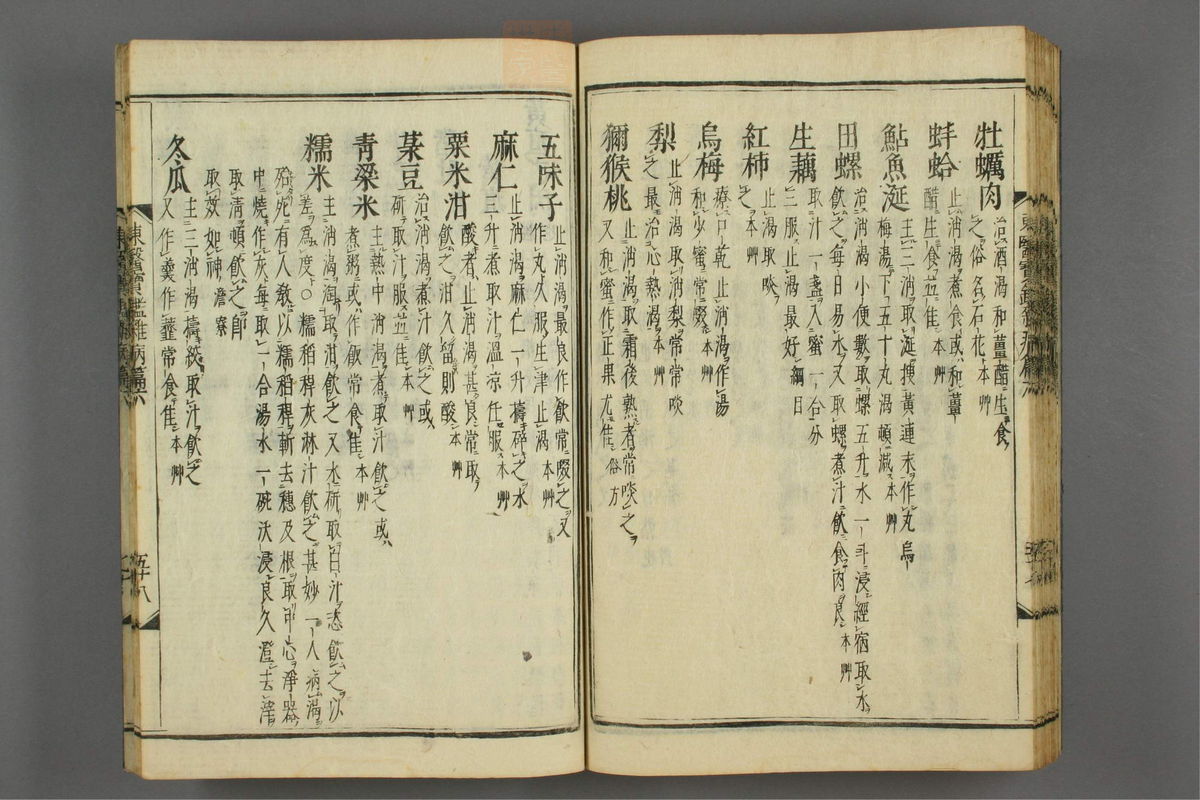 牡蠣肉
治酒渴和薑醋生食
之俗名石花本艸
蚌蛤
止消渴煮食或和薑
醋生食並佳本艸
鮎魚涎
主三消取涎捜黃連末作丸烏
梅湯下五十丸渴頓減本艸
田螺
治消渴小便數取螺五升水一斗浸經宿取水
飮之每日易水又取螺煮汁飮食肉良本艸
生藕
取汁一盞入蜜一合分
三服止渴最好綱目
紅柿
止渴取啖
之本艸
烏梅
療口乾止消渴作湯
和少蜜常啜本艸
梨
止消渴取消梨常常啖
之最治心熱渴本艸
獼猴桃
止消渴取霜後熟者常啖之
又和蜜作正果尤佳俗方
五味子
止消渴最良作飮常啜之又
作丸久服生津止渴本艸
麻仁
止消渴麻仁一升擣碎之水
三升煮取汁溫凉任服本艸
粟米泔
酸者止消渴甚良常取
飮之泔久留則酸本艸
菉豆
治消渴煮汁飮之或
硏取汁服並佳本艸
青粱米
主熱中消渴煮取汁飮之或
煮粥或作飯常食佳本艸
糯米
主消渴淘取泔飮之又水硏取白汁恣飮之以
差爲度○糯稻稈灰淋汁飮之甚妙一人病渴
殆死有人敎以糯稻稈斬去穗及根取中心淨器
中燒作灰每取一合湯水一碗沃浸良久澄去滓
取淸頓飮之卽
取效如神澹寮
冬瓜
主三消渴擣絞取汁飮之
又作羹作虀常食佳本艸
東醫寶鑑雜病篇六
五十八